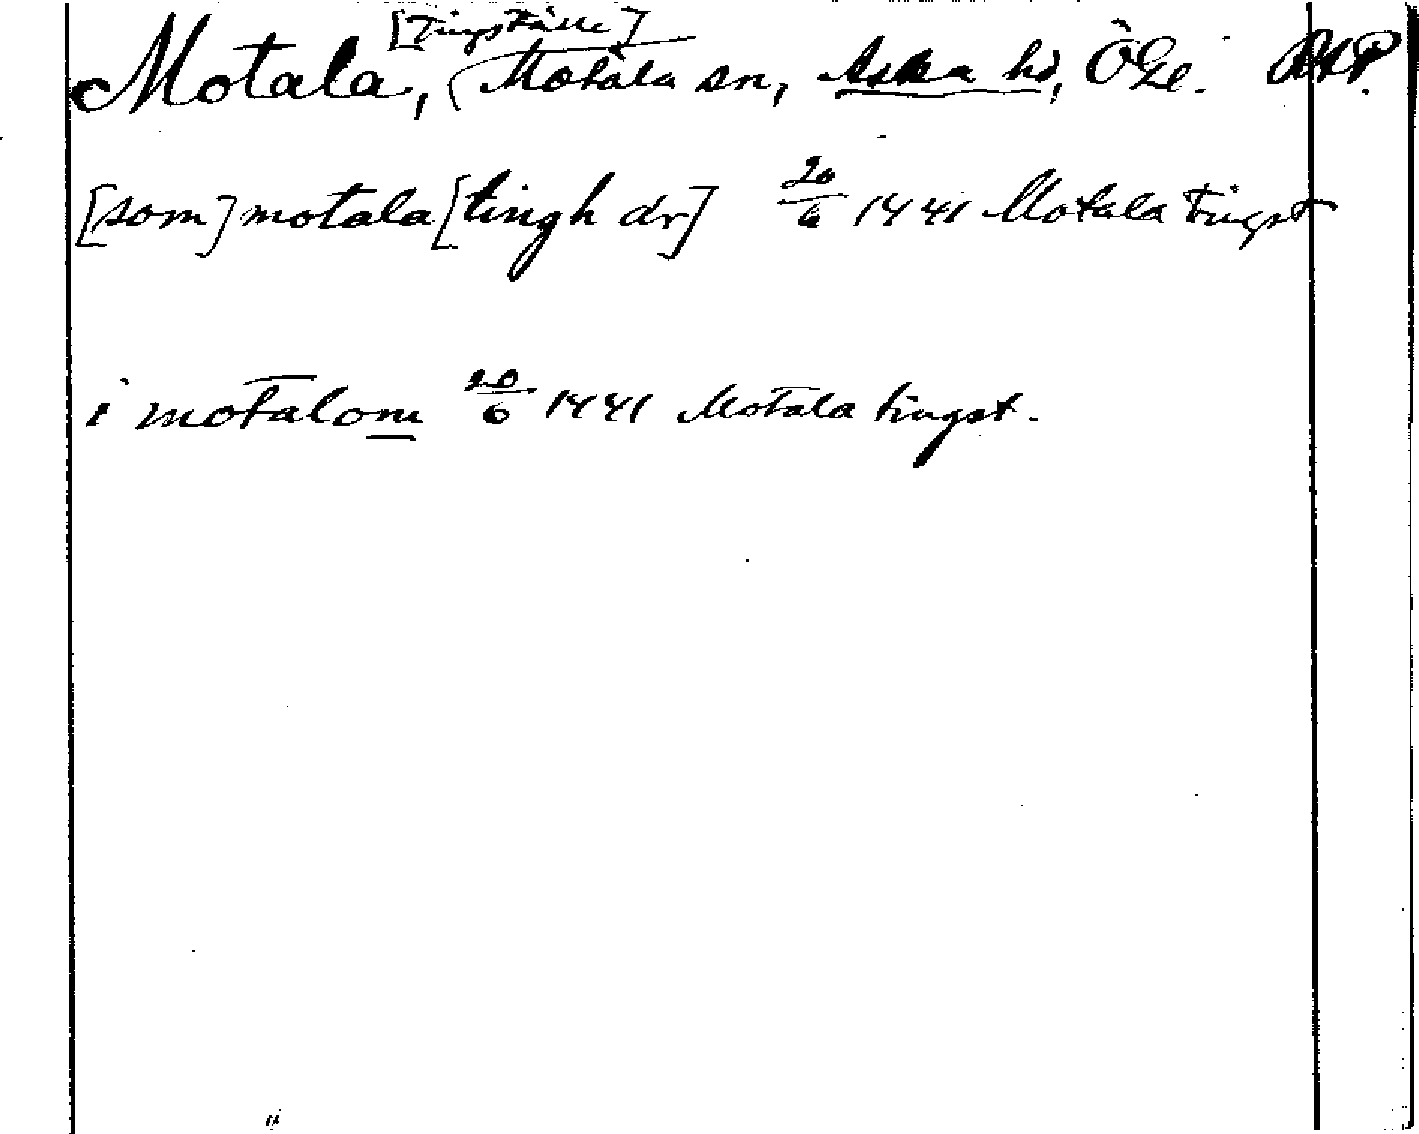 [Tingställe]
Motala, (Motala sn, Aska hd, Ögl. RAP.
[som] motala [tingh är] 20/6 1441 Motala tingst
i motalom 20/6 1441 Motala tingst.